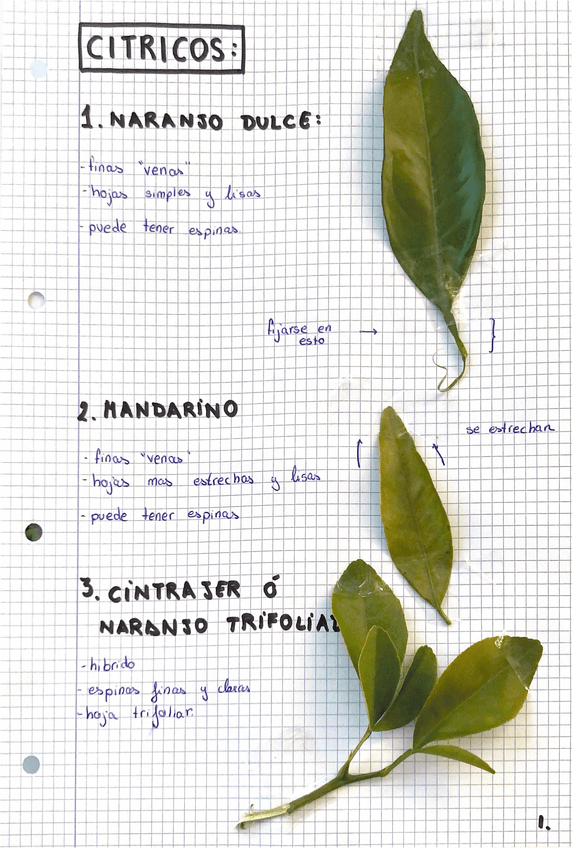 CITRICOS:
1. NARANJO DULCE:
- finas "venas"
- hojas simples y lisas
- puede tener espinas
fijarse en →
esto
}
2. MANDARINO
se estrechan
- finas "venas"
- hojas mas estrechas y lisas
- puede tener espinas
3. CINTRAJER Ó
NARANJO TRIFOLIAR
- hibrido
- espinas finas y claras
- hoja trifoliar
1.